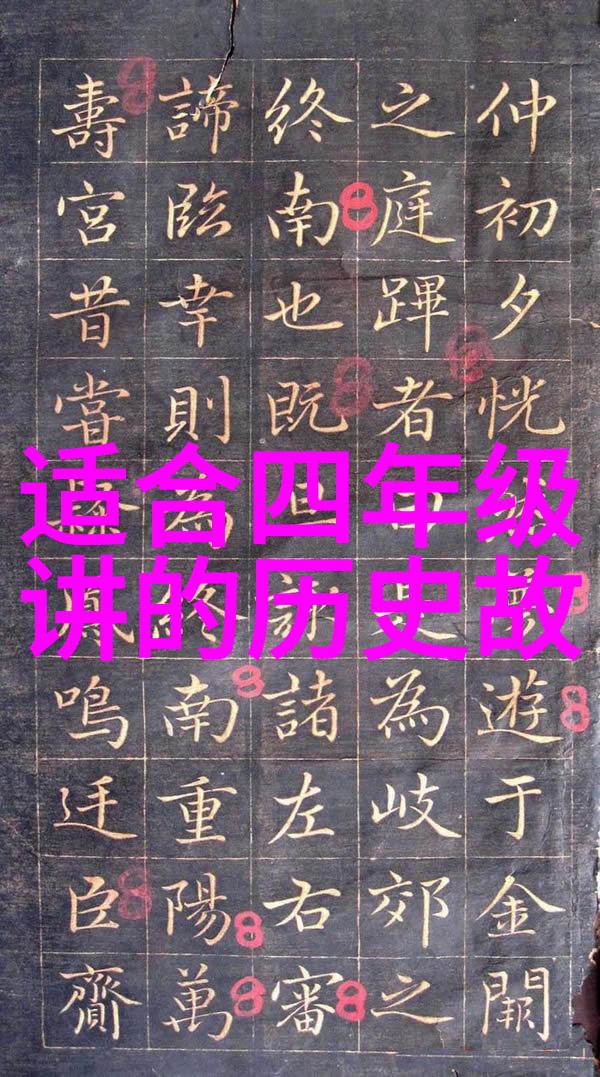 适合四年级
讲的历史故
仲初夕恍遊于金闕
之庭蹕者是為岐郊之
終南也既且詠諸左右審
諦臨幸則為終南重陽萬
壽宮昔嘗鳴廷臣齎